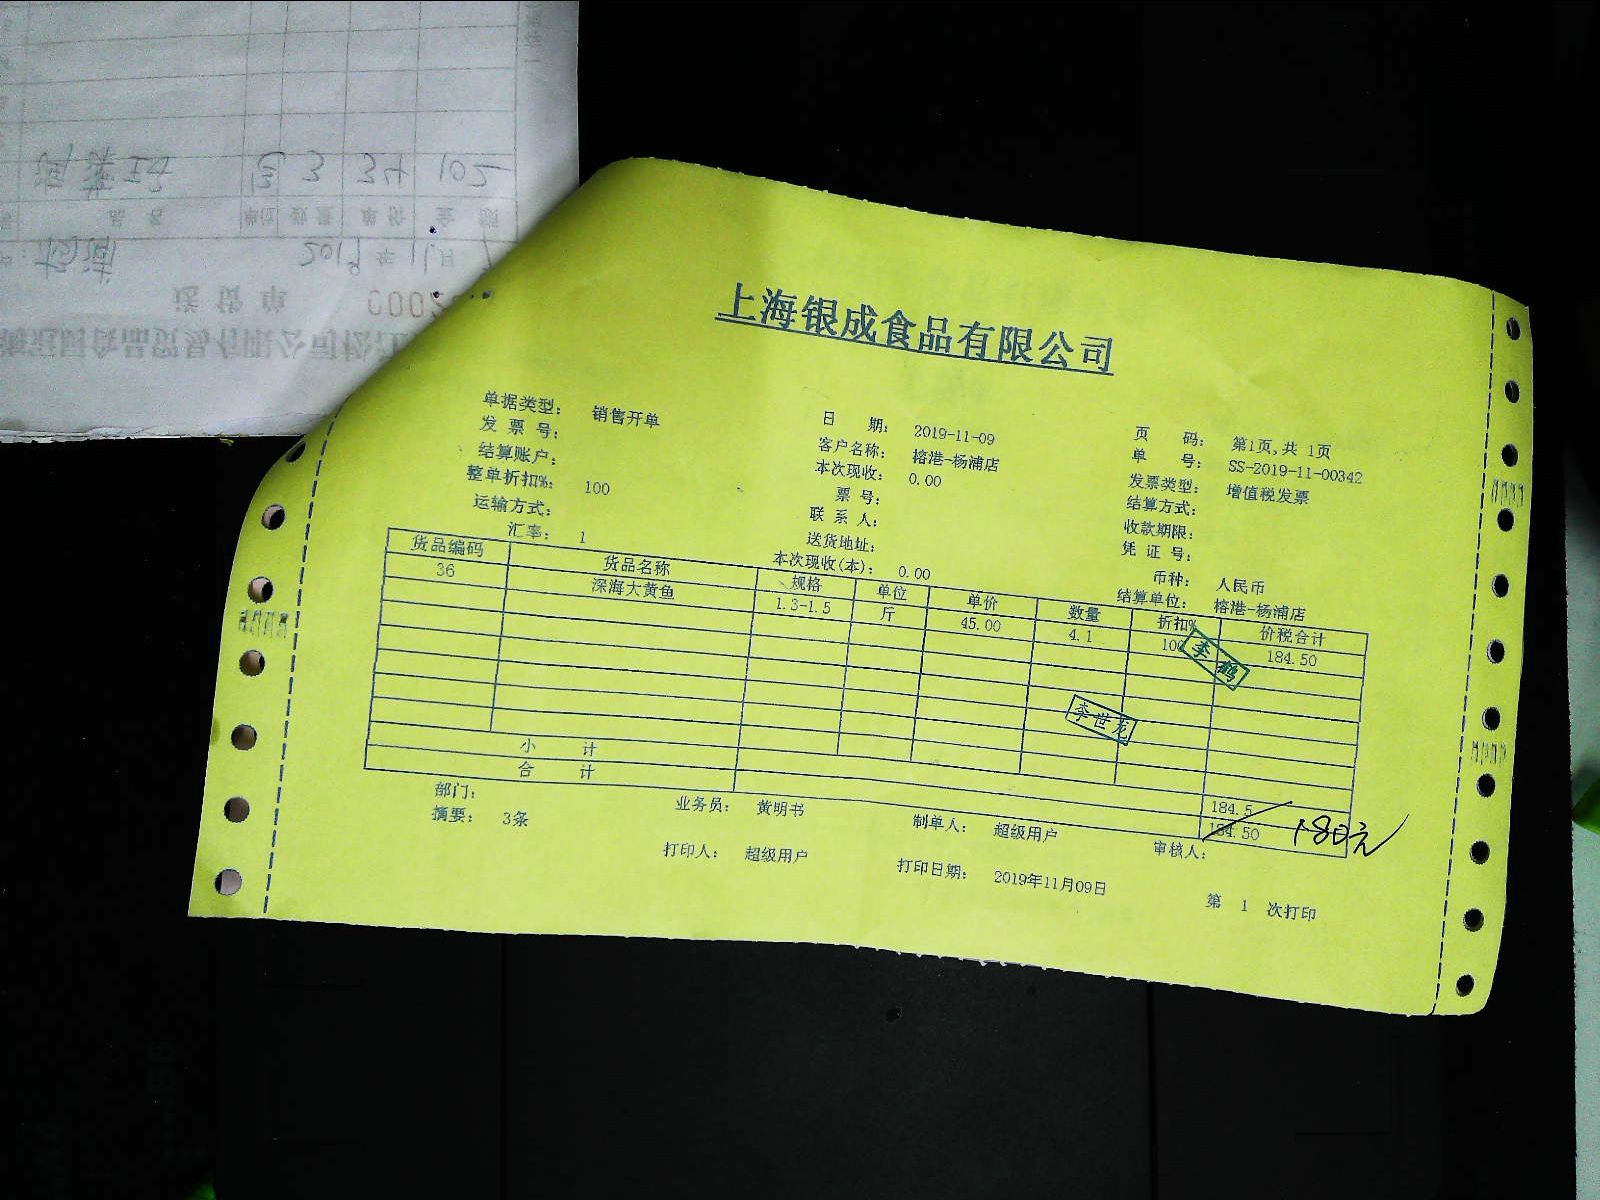 上海银成食品有限公司
单据类型： 销售开单 日 期： 2019-11-09 页 码： 第1页,共 1页
发 票 号： 客户名称： 榕港-杨浦店 单 号： SS-2019-11-00342
结算账户： 本次现收： 0.00 发票类型： 增值税发票
整单折扣%： 100 票 号： 结算方式：
运输方式： 联 系 人： 收款期限：
汇率： 1 送货地址： 凭 证 号：
本次现收(本)： 0.00 币种： 人民币
结算单位： 榕港-杨浦店
货品编码 货品名称 规格 单位 单价 数量 折扣% 价税合计
36 深海大黄鱼 1.3-1.5 斤 45.00 4.1 100 184.50
李鹤
李世龙
小 计 184.5
合 计 184.50 180元
部门： 业务员： 黄明书 制单人： 超级用户 审核人：
摘要： 3条 打印人： 超级用户 打印日期： 2019年11月09日 第 1 次打印
送 货 单 0002
2019 年 11 月
品 名 单位 数量 单价 金 额
3 34 102